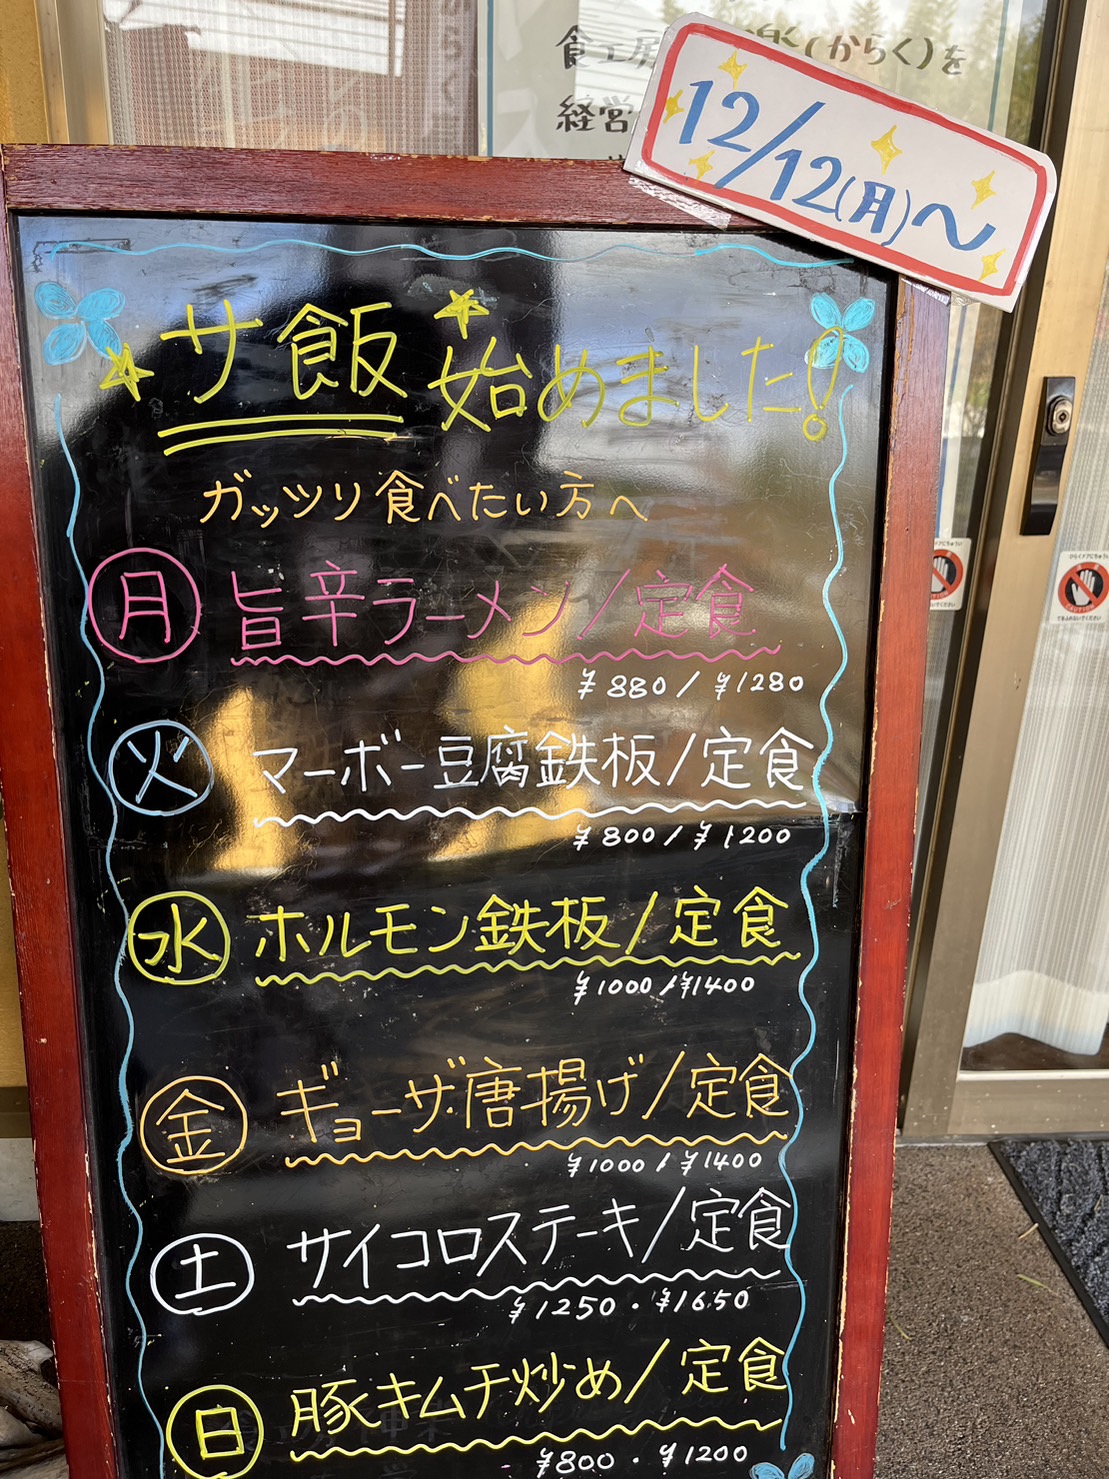 食工房 楽(からく)を
経営
12/12(月)～
サ飯 始めました!
ガッツリ食べたい方へ
月 旨辛ラーメン/定食
¥880/¥1280
火 マーボー豆腐鉄板/定食
¥800/¥1200
水 ホルモン鉄板/定食
¥1000/¥1400
金 ギョーザ唐揚げ/定食
¥1000/¥1400
土 サイコロステーキ/定食
¥1250・¥1650
日 豚キムチ炒め/定食
¥800・¥1200